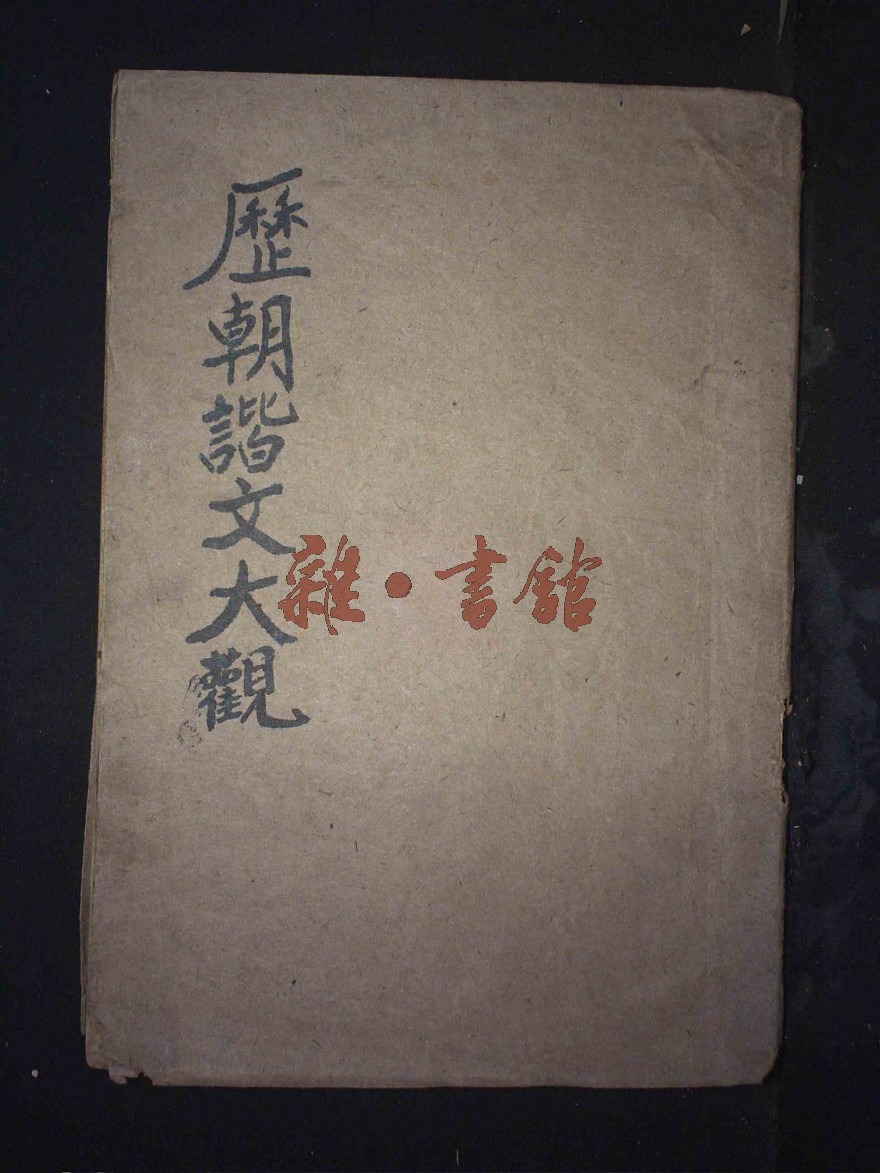 歷朝諧文大觀
雜·書館